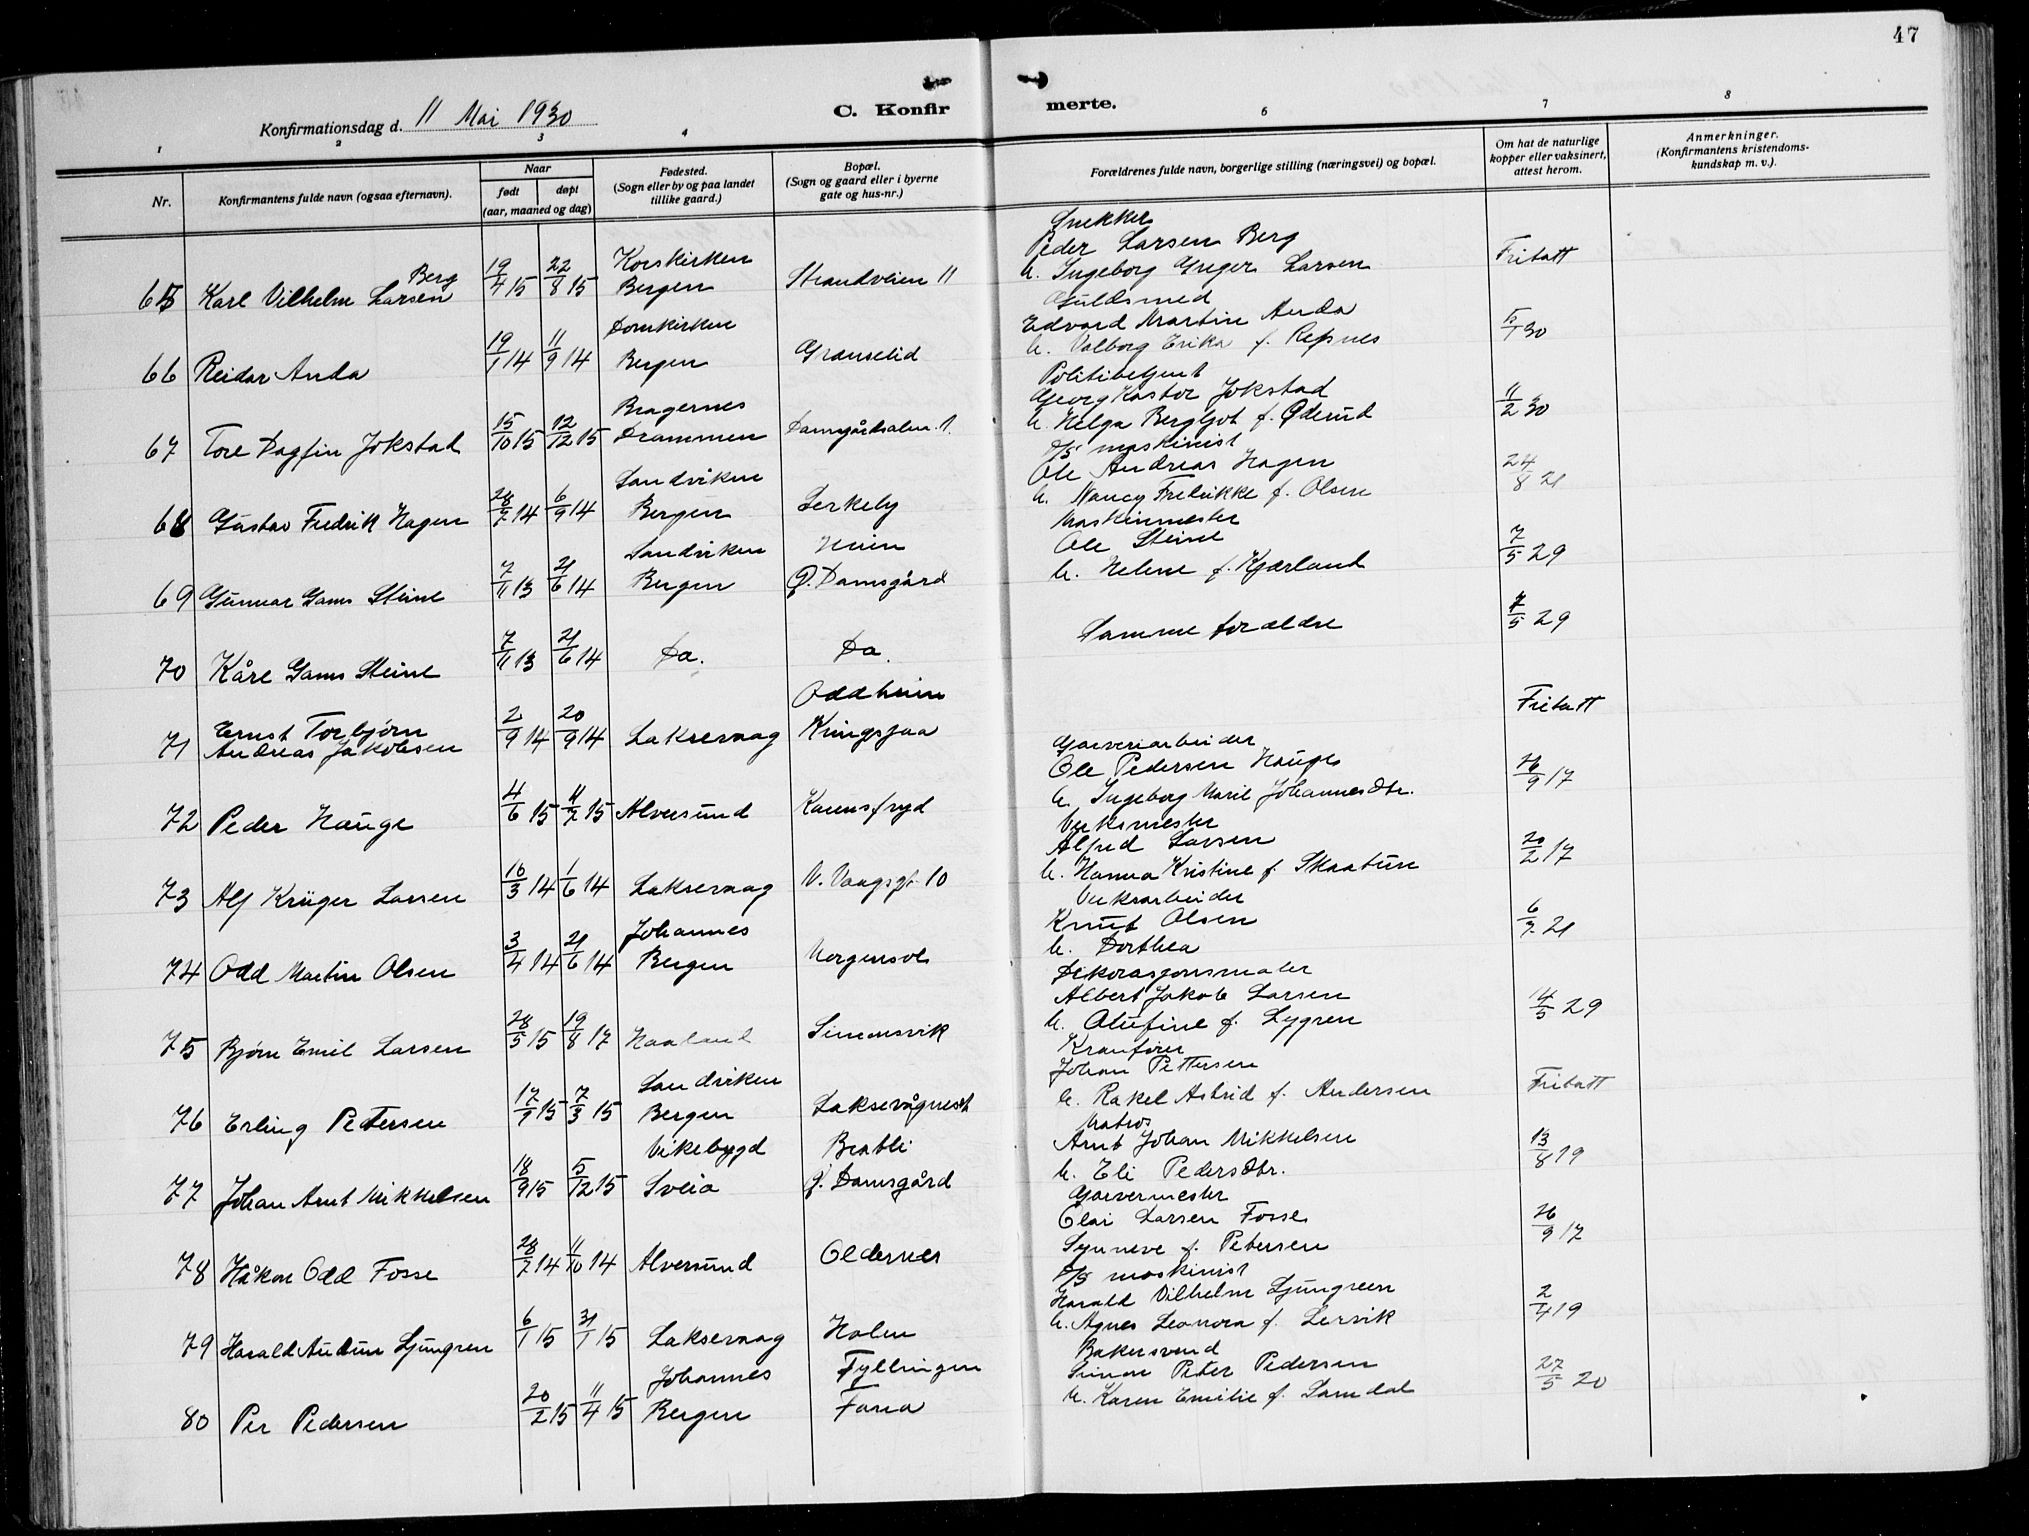 47
Konfirmationsdag d. 11 Mai 1930
C. Konfirmerte.
1 2 3 4 6 7 8
Nr.
Konfirmantens fulde navn (ogsaa efternavn).
Naar
født døpt
(aar, maaned og dag)
Fødested.
(Sogn eller by og paa landet
tillike gaard.)
Bopæl.
(Sogn og gaard eller i byerne
gate og hus-nr.)
Forældrenes fulde navn, borgerlige stilling (næringsvei) og bopæl.
Om hat de naturlige
kopper eller vaksinert,
attest herom.
Anmerkninger.
(Konfirmantens kristendoms-
kundskap m. v.).
Snekker
Berg Korskirken Peder Larsen Berg
65 Karl Vilhelm Larsen 19/4 15 22/8 15 Bergen Strandveien 11 h. Ingeborg Greger Larsen Fritatt
Domkirken Guldsmed
Edvard Martin Anda
66 Reidar Anda 19/1 14 11/9 14 Bergen Grænselid h. Valborg Erika f. Refsnes 5/1 30
Bragernes Politibetjent
Georg Kastor Jokstad
67 Tore Dagfin Jokstad 15/10 15 12/12 15 Drammen Damsgårdsalm. 1. h. Helga Bergljot f. Øderud 11/2 30
Sandviken D/S maskinist
Ole Andreas Hagen
68 Gustav Fredrik Hagen 28/7 14 6/9 14 Bergen Lerkeby h. Nancy Fredrikke f. Olsen 24/8 21
Sandviken Heim Maskinmester
Ole Steine
69 Gunnar Gams Steine 7/11 13 21/6 14 Bergen Ø. Damsgård h. Helene f. Kjærland 7/5 29
70 Kåre Gams Steine 7/11 13 21/6 14 Do. Do. Samme forældre 7/5 29
Ernst Torbjørn Oddheim
71 Andreas Jakobsen 2/9 14 20/9 14 Laksevaag Kringsjaa Fritatt
Garveriarbeider
Ole Pedersen Hauge
72 Peder Hauge 4/6 15 11/7 15 Alversund Karensfryd h. Ingeborg Marie Johannesdtr. 26/9 17
Verksmester
Alfred Larsen
73 Alf Krüger Larsen 16/3 14 1/6 14 Laksevaag N. Vaagsgt. 10 h. Hanna Kristine f. Skaatun 20/2 17
Johannes Verksarbeider
Knut Olsen
74 Odd Martin Olsen 3/4 14 21/6 14 Bergen Morgensol h. Dorthea 6/7 21
Dekorasjonsmaler
Albert Jakob Larsen
75 Bjørn Emil Larsen 28/5 15 19/8 17 Haaland Simonsvik h. Olufine f. Lygren 14/5 29
Sandviken Kranfører
Johan Pettersen
76 Erling Pettersen 17/1 15 7/3 15 Bergen Laksevågnest h. Rakel Astrid f. Andersen Fritatt
Vikebygd Bratli Matros
Arnt Johan Mikkelsen
77 Johan Arnt Mikkelsen 18/9 15 5/12 15 Sveio Ø. Damsgård h. Eli Pedersdtr. 13/8 19
Garvermester
Olai Larsen Fosse
78 Håkon Odd Fosse 28/7 14 11/10 14 Alversund Oldernes Synneve f. Petersen 26/9 17
D/S maskinist
Harald Vilhelm Ljungreen
79 Harald Audun Ljungren 6/1 15 31/1 15 Laksevaag Holen h. Agnes Leonora f. Lervik 2/4 19
Johannes Fyllingen Bakersvend
Simon Peter Pedersen
80 Per Pedersen 20/2 15 11/4 15 Bergen Fana h. Karen Emilie f. Samdal 27/5 20